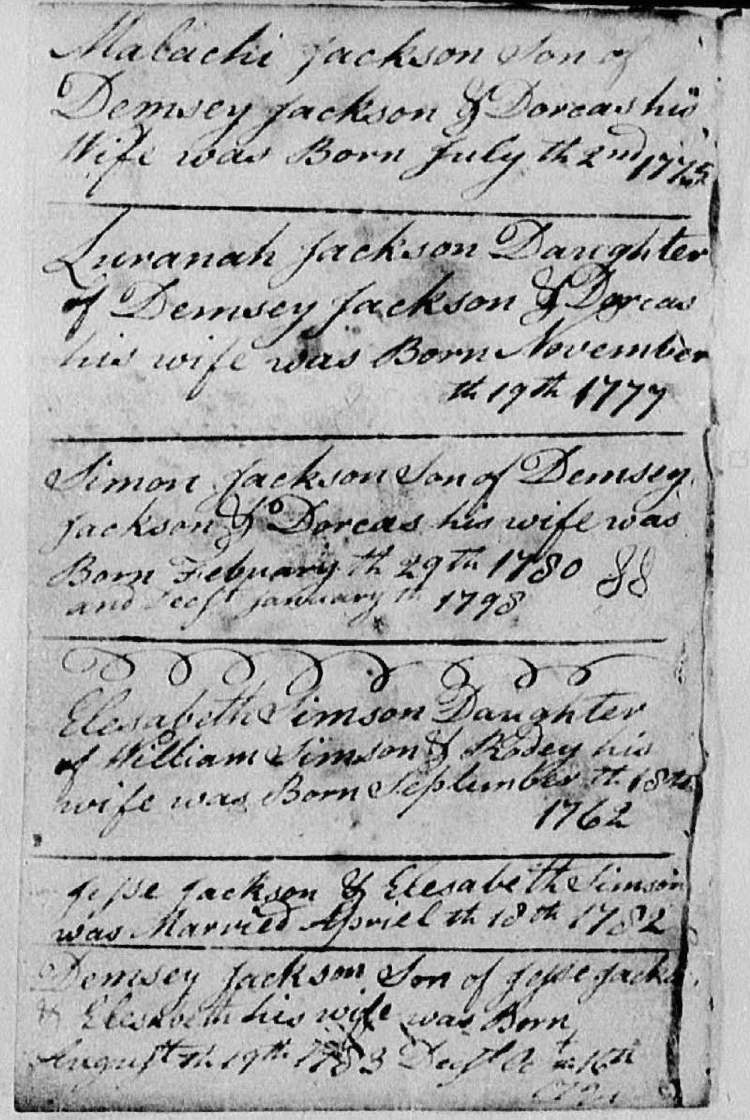 Malachi Jackson Son of
Demsey Jackson & Dorcas his
Wife was Born July th 2nd 1775
Luranah Jackson Daughter
of Demsey Jackson & Dorcas
his wife was Born November
th 19th 1777
Simon Jackson Son of Demsey
Jackson & Dorcas his wife was
Born Febuary th 29th 1780 88
and Decst January th 1798
Elesabeth Simson Daughter
of William Simson & Rodey his
wife was Born September th 18th
1762
Jesse Jackson & Elesabeth Simson
was Married Apriel th 18th 1782
Demsey Jackson Son of Jesse Jacks
& Elesabeth his wife was Born
August th 19th 1783 16th